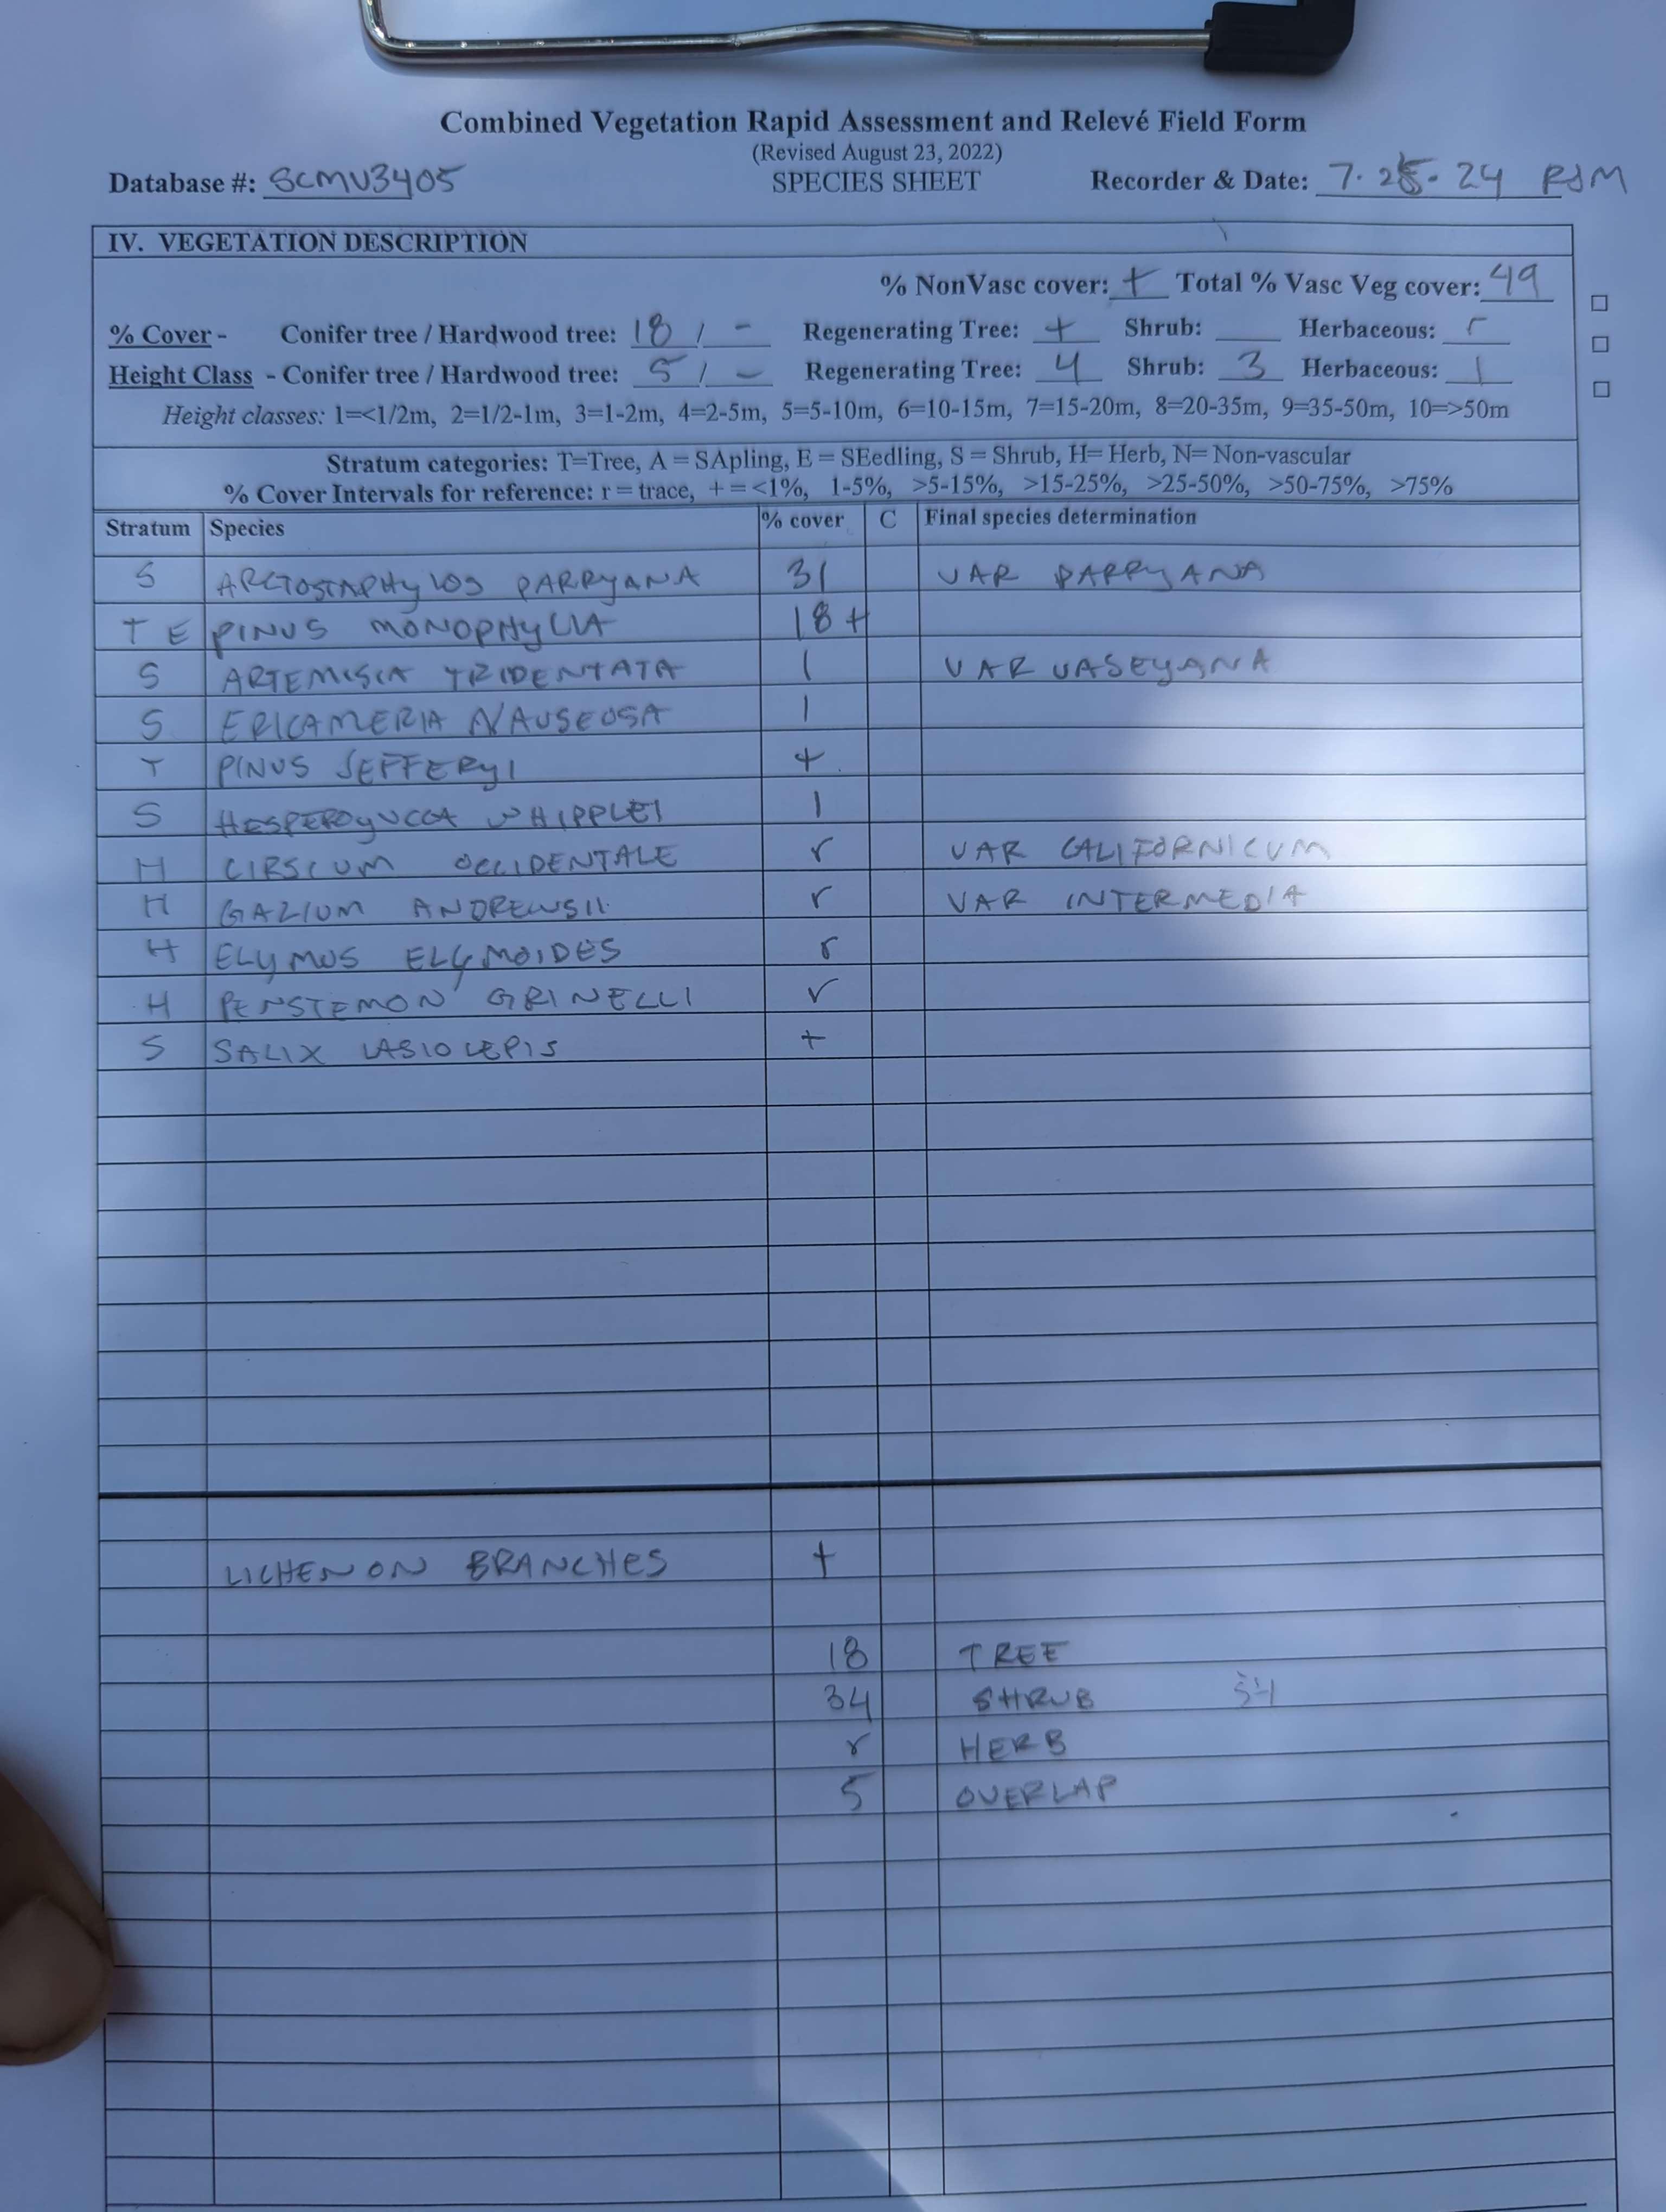 Combined Vegetation Rapid Assessment and Relevé Field Form
(Revised August 23, 2022)
Database #: SCMV3405 SPECIES SHEET Recorder & Date: 7.25.24 RJM
IV. VEGETATION DESCRIPTION
% NonVasc cover: + Total % Vasc Veg cover: 49
% Cover - Conifer tree / Hardwood tree: 18 / - Regenerating Tree: + Shrub: ___ Herbaceous: r
Height Class - Conifer tree / Hardwood tree: 5 / - Regenerating Tree: 4 Shrub: 3 Herbaceous: 1
Height classes: 1=<1/2m, 2=1/2-1m, 3=1-2m, 4=2-5m, 5=5-10m, 6=10-15m, 7=15-20m, 8=20-35m, 9=35-50m, 10=>50m
Stratum categories: T=Tree, A = SApling, E = SEedling, S = Shrub, H= Herb, N= Non-vascular
% Cover Intervals for reference: r = trace, + = <1%, 1-5%, >5-15%, >15-25%, >25-50%, >50-75%, >75%
Stratum Species % cover C Final species determination
S ARCTOSTAPHYLOS PARRYANA 31 VAR PARRYANA
T E PINUS MONOPHYLLA 18 +
S ARTEMISIA TRIDENTATA 1 VAR VASEYANA
S ERICAMERIA NAUSEOSA 1
T PINUS JEFFERYI +
S HESPEROYUCCA WHIPPLEI 1
H CIRSIUM OCCIDENTALE r VAR CALIFORNICUM
H GALIUM ANDREWSII r VAR INTERMEDIA
H ELYMUS ELYMOIDES r
H PENSTEMON GRINELLI r
S SALIX LASIOLEPIS +
LICHEN ON BRANCHES +
18 TREE
34 SHRUB 34
r HERB
5 OVERLAP